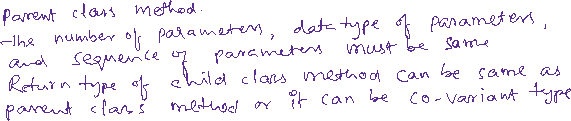 Parent class method.
-The number of parameters, data type of parameters,
and sequence of parameters must be same
Return type of child class method can be same as
parent class method or it can be co-variant type